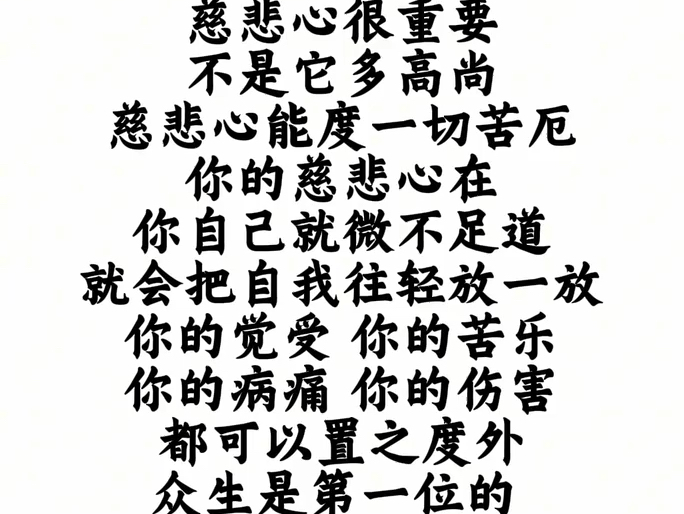 慈悲心很重要
不是它多高尚
慈悲心能度一切苦厄
你的慈悲心在
你自己就微不足道
就会把自我往轻放一放
你的觉受 你的苦乐
你的病痛 你的伤害
都可以置之度外
众生是第一位的